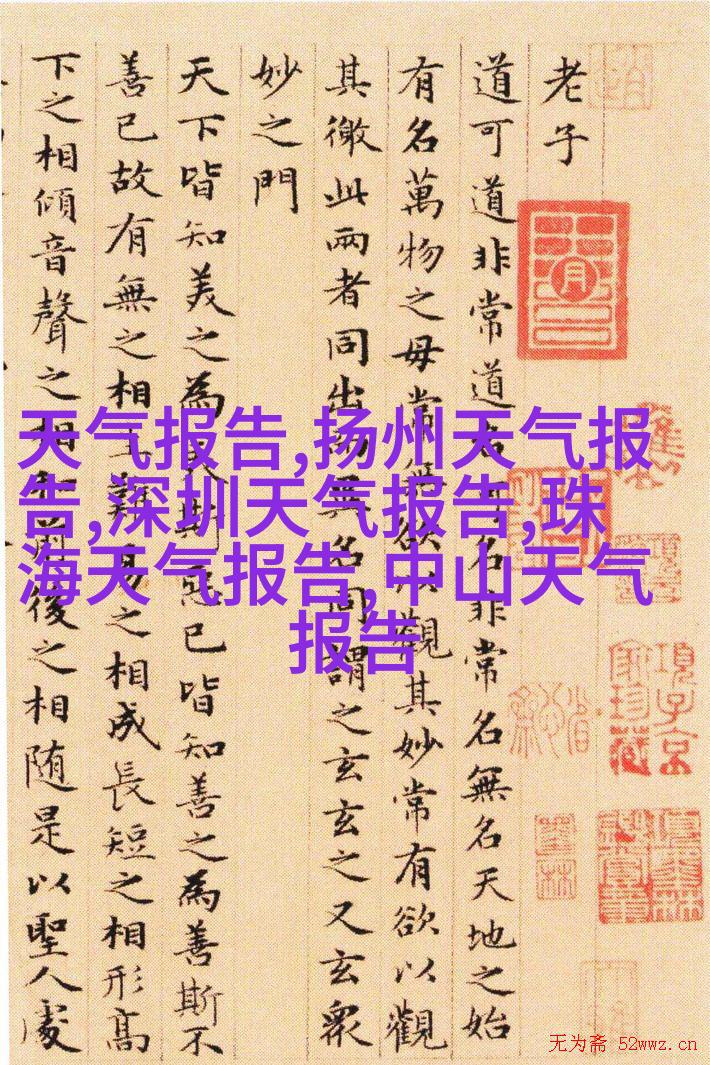 老子
道可道非常道名可名非常名無名天地之始
有名萬物之母常無欲以觀其妙常有欲以觀
其徼此兩者同出而異名同謂之玄玄之又玄衆
妙之門
天下皆知美之為美斯惡已皆知善之為善斯不
善已故有無之相生難易之相成長短之相形高
下之相傾音聲之相和前後之相随是以聖人處
天气报告,扬州天气报
告,深圳天气报告,珠
海天气报告,中山天气
报告
項子京
家珍藏
无为斋 52wwz.cn